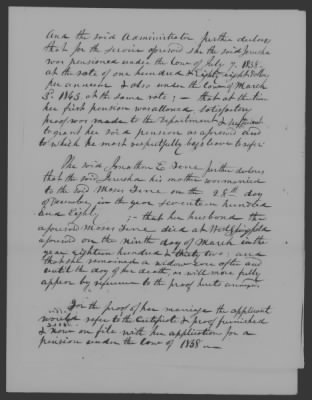 And the said Administrator further declares
that for the service aforesaid she the said Jerusha
was pensioned under the law of July 7. 1838.
at the rate of one hundred & Eighty eight Dollars
per annum & also under the law of March
3d. 1843 at the same rate; – that at the time
her first pension was allowed satisfactory
proof was made to the department &
to grant her said pension as aforesaid and
to which he most respectfully begs leave to refer
The said Jonathan E. further declares
that the said Jerusha his mother was married
to the said Moses on the 28th day
of December, in the year seventeen hundred
and Eighty, ; – that her husband the
aforesaid Moses died at
aforesaid on the ninth day of March in the
year eighteen hundred & thirty two; and
that she remained a widow ever after and
until the day of her death, as will more fully
appear by reference to the proof hereto annexed
For the proof of her marriage the applicant
would refer to the & proof furnished
& now on file with her application for a
pension under the law of 1838 –